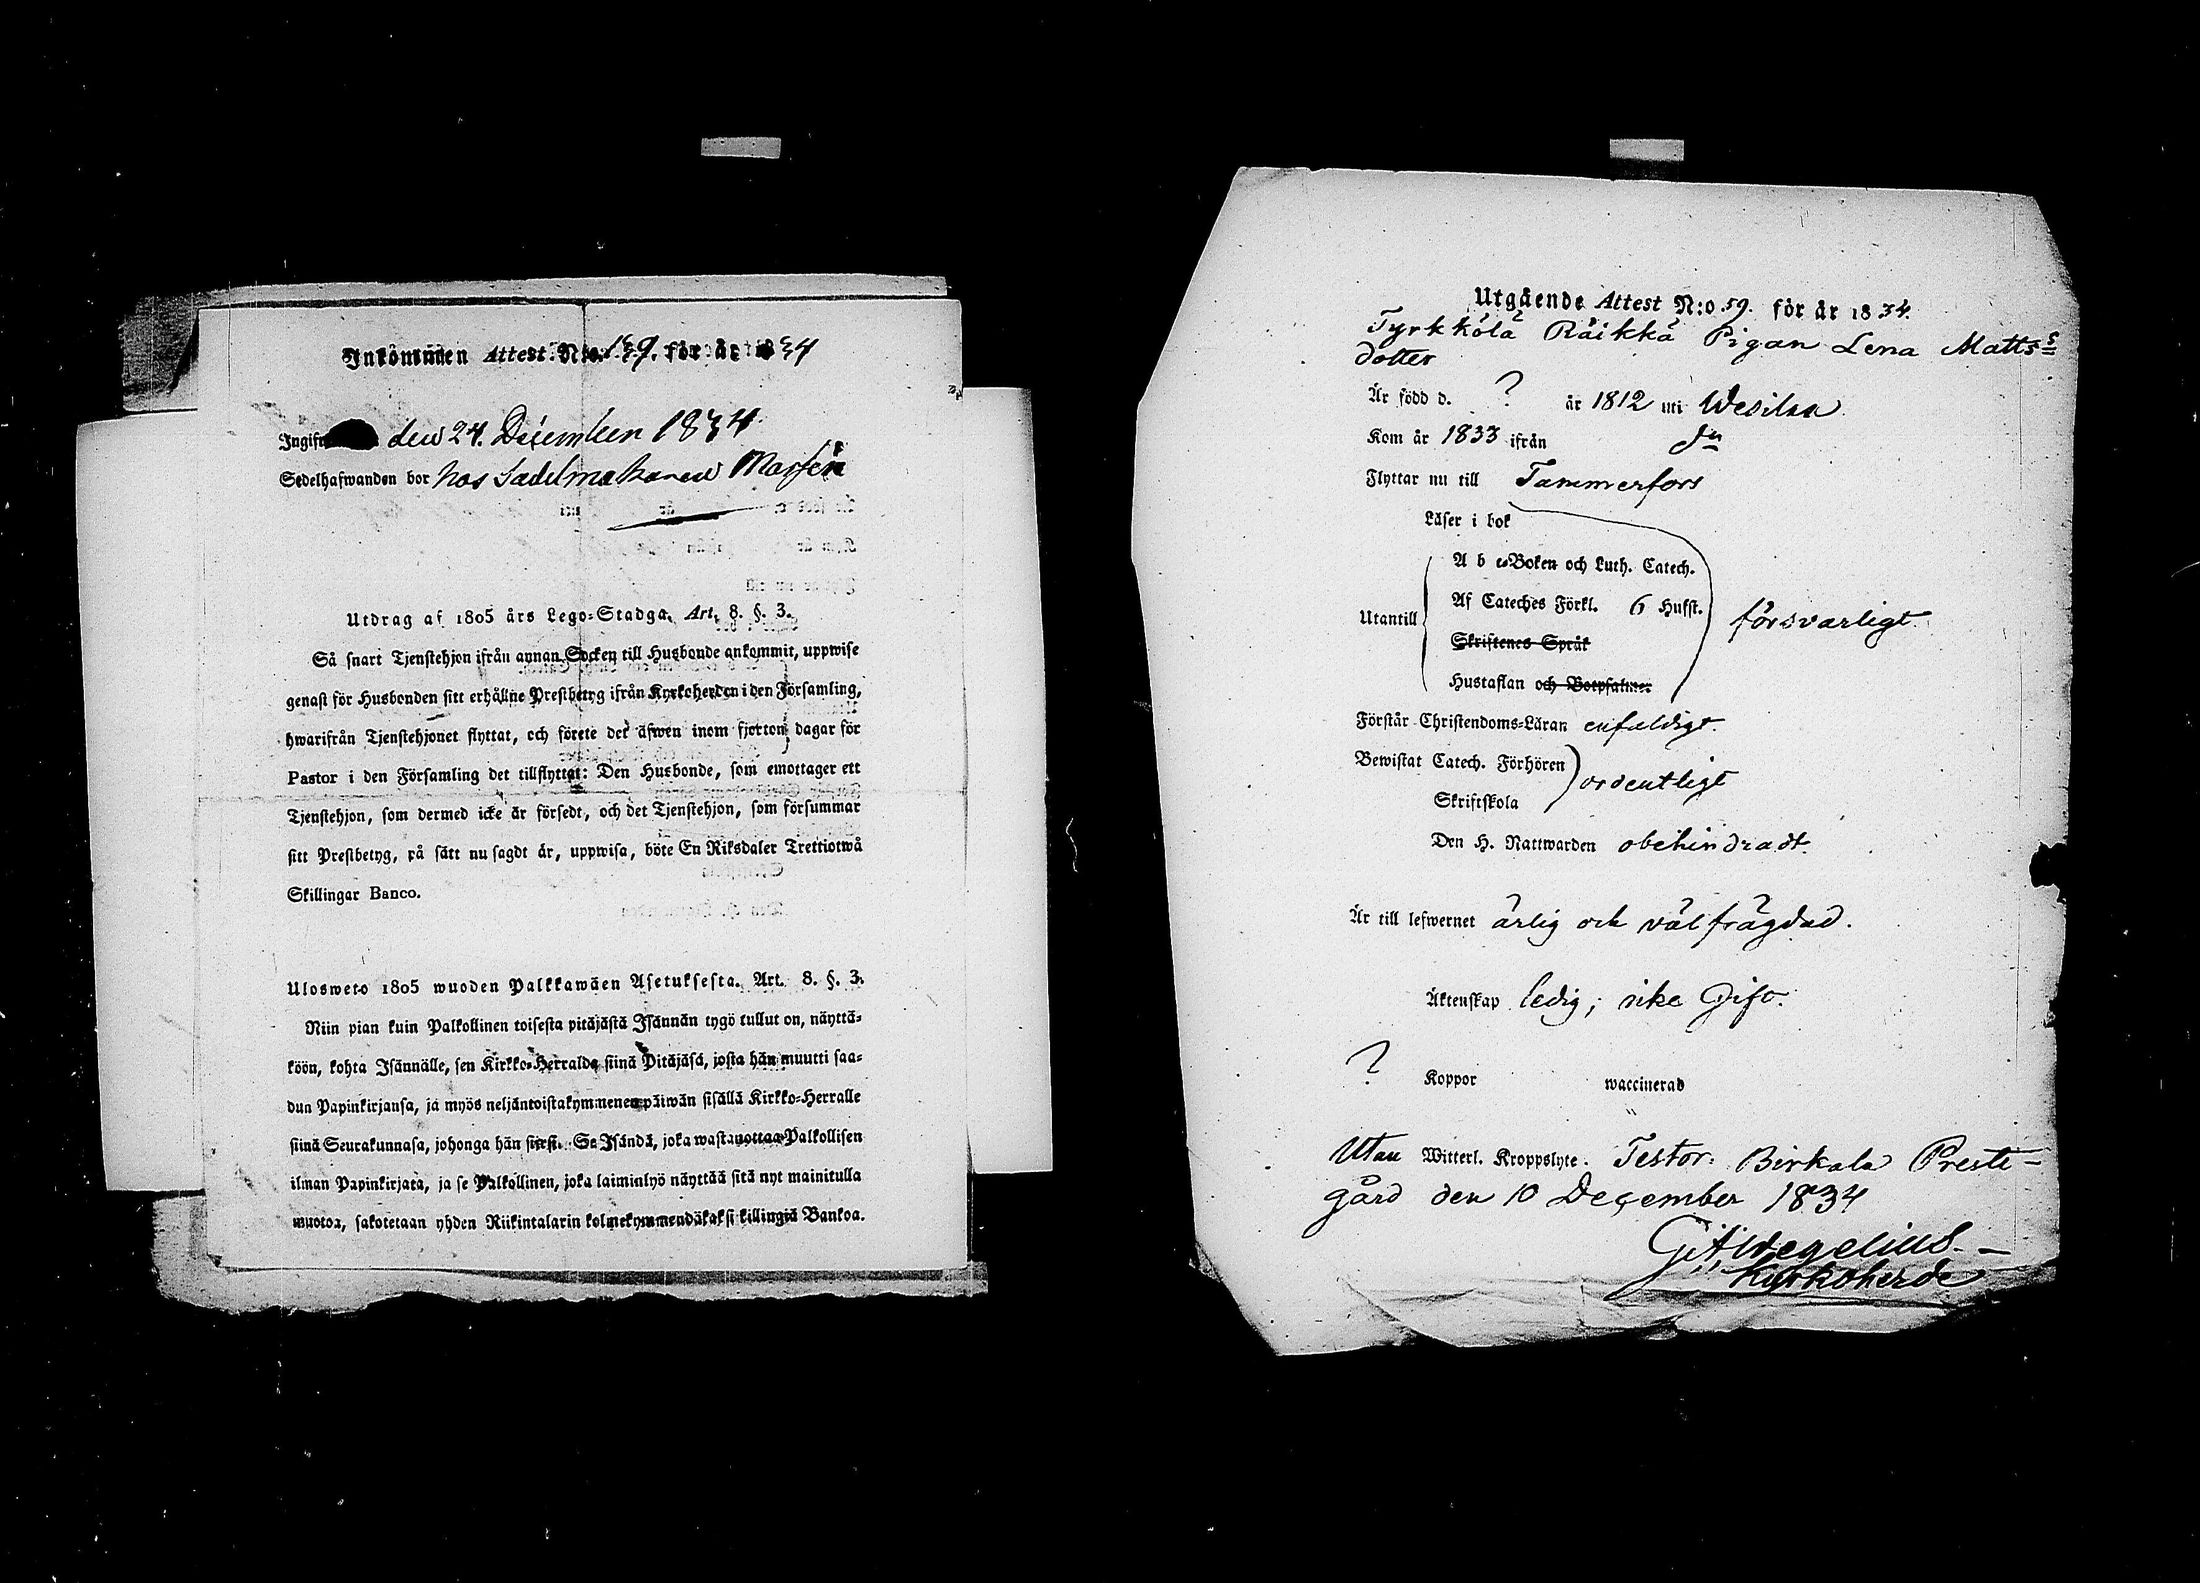 Inkommen Attest N:o 159. för år 1834
Ingifven den 24. December 1834.
Sedelhafwanden bor hos Sadelmakaren
Utdrag af 1805 års Lego-Stadga, Art. 8. §. 3.
Så snart Tjenstehjon ifrån annan Socken till Husbonde ankommit, uppwise
genast för Husbonden sitt erhållne Prestbetyg ifrån Kyrkoherden i den Församling,
hwarifrån Tjenstehjonet flyttat, och förete det äfwen inom fjorton dagar för
Pastor i den Församling det tillflyttat: Den Husbonde, som emottager ett
Tjenstehjon, som dermed icke är försedt, och det Tjenstehjon, som försummar
sitt Prestbetyg, på sätt nu sagdt är, uppwisa, böte En Riksdaler Trettiotwå
Skillingar Banco.
Ulosweto 1805 wuoden Palkkawäen Asetuksesta. Art. 8. §. 3.
Niin pian kuin Palkollinen toisesta pitäjästä Isännän tygö tullut on, näyttä-
köön, kohta Isännälle, sen Kirkko-Herralda siinä Pitäjäsä, josta hän muutti saa-
dun Papinkirjansa, ja myös neljäntoistakymmenen päiwän sisällä Kirkko-Herralle
siinä Seurakunnasa, johonga hän siirsi. Se Isändä, joka wastanottaa Palkollisen
ilman Papinkirjata, ja se Palkollinen, joka laiminlyö näyttää sitä nyt mainitulla
muotoa, sakotetaan yhden Riikintalarin kolmekymmendäkaksi killingiä Bankoa.
Utgående Attest N:o 59. för år 1834.
Tyrkkölä Räikkä Pigan Lena Matts
dotter
Är född d. ? år 1812 uti Wesilax
Kom år 1833 ifrån dn
Flyttar nu till Tammerfors
Läser i bok
A b c-Boken och Luth. Catech.
Utantill Af Cateches Förkl. 6 Hufst. försvarligt
Skriftenes Språk
Hustaflan och Botpsalmer
Förstår Christendoms-Läran enfaldigt.
Bewistat Catech. Förhören ordentligt
Skriftskola
Den H. Nattwarden obehindradt.
Är till lefwernet ärlig och välfrägdad.
Äktenskap ledig, icke Gift.
? Koppor waccinerad
Utan Witterl. Kroppslyte. Testor. Birkala Preste-
gård den 10 December 1834
G: A: Wegelius.
Kyrkoherde